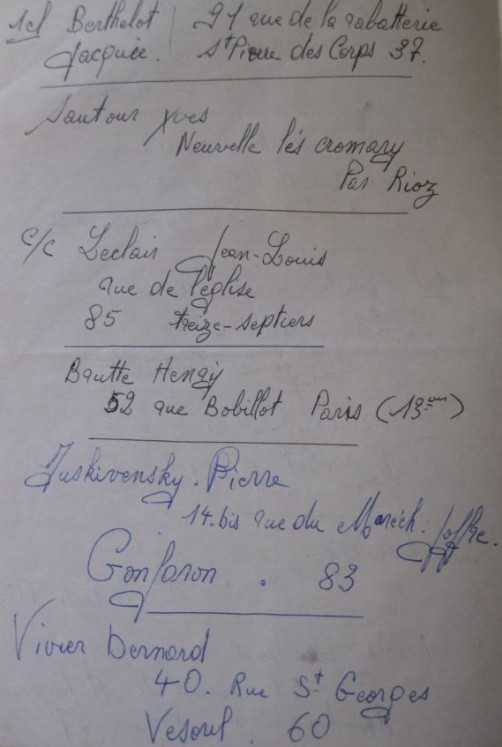 1cl Berthelot 91 rue de la rabatterie
Jacquie. St Pierre des Corps 37.
Sautour Yves
Neuvelle lés cromary
Par Rioz
c/c Leclair Jean-Louis
rue de l'église
85 treize-septiers
Bautte Henry
52 rue Bobillot Paris (13ème)
Juskivensky. Pierre
14. bis rue du Maréch. Joffre.
Gonfaron. 83
Vivier Bernard
40. Rue St Georges
Vesoul. 60